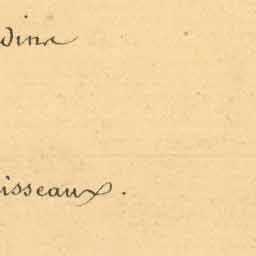 dine
isseaux.